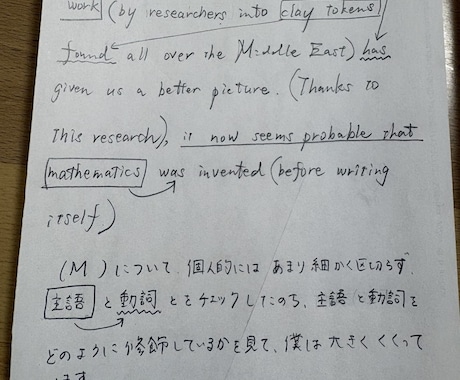 work (by researchers into clay tokens
found all over the Middle East) has
given us a better picture. (Thanks to
this research), it now seems probable that
mathematics was invented (before writing
itself)
(M) について、個人的には あまり細かく区切らず、
主語 と 動詞 とをチェックしたのち、主語と動詞を
どのように修飾しているかを見て、僕は大きくくくって
います